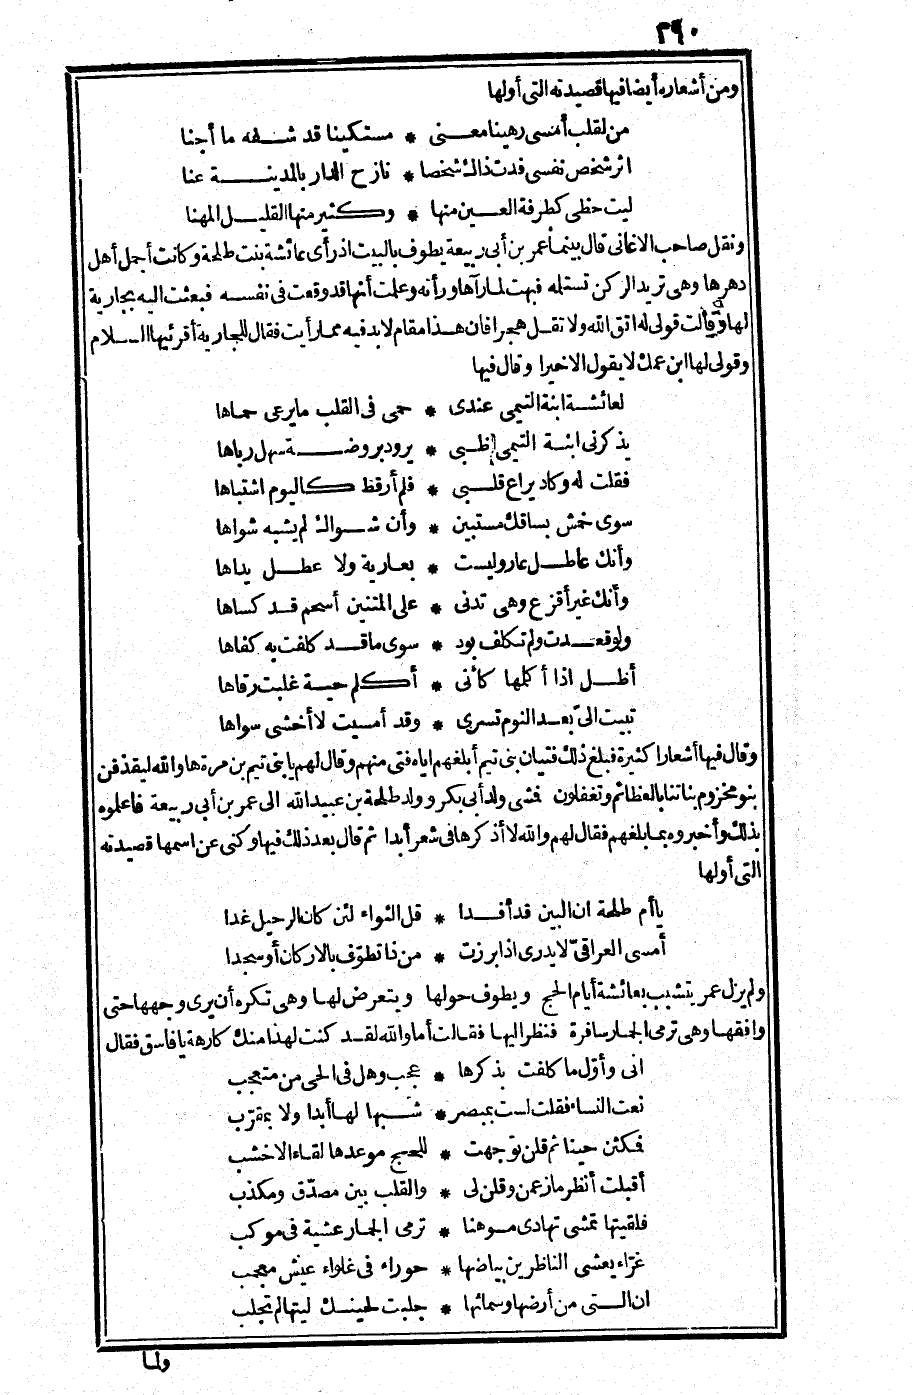 ٣٩٠
ومن أشعاره أيضا فيها قصيدته التى أولها
من لقلب أمسى رهينا معنى * مستكينا قد شفه ما أجنا
اثر شخص نفسى فدت ذاك شخصا * نازح الدار بالمدينة عنا
ليت حظى كطرفة العين منها * وكثير منها القليل المهنا
ونقل صاحب الاغانى قال بينما عمر بن أبى ربيعة يطوف بالبيت اذ رأى عائشة بنت طلحة وكانت أجمل أهل
دهرها وهى تريد الركن تستلمه فبهت لما رآها ورأته وعلمت أنها قد وقعت فى نفسه فبعثت اليه بجارية
لها وقالت قولى له اتق الله ولا تقل هجرا فان هذا مقام لا بد فيه مما رأيت فقال للجارية أقرئيها السلام
وقولى لها ابن عمك لا يقول الا خيرا وقال فيها
لعائشة ابنة التيمى عندى * حمى فى القلب ما يرعى حماها
يذكرنى ابنة التيمى ظبى * يرود بروضة سهل رباها
فقلت له وكاد يراع قلبى * فلم أر قط كاليوم اشتباها
سوى خمش بساقك مستبين * وأن شواك لم يشبه شواها
وأنك عاطل عار وليست * بعارية ولا عطل يداها
وأنك غير أقزع وهى تدنى * على المتنين أسحم قد كساها
ولو قعدت ولم تكلف بود * سوى ما قد كلفت به كفاها
أظل اذا أكلمها كأنى * أكلم حية غلبت رقاها
تبيت الىّ بعد النوم تسرى * وقد أمسيت لا أخشى سواها
وقال فيها أشعارا كثيرة فبلغ ذلك فتيان بنى تيم أبلغهم اياه فتى منهم وقال لهم يا بنى تيم بن مرة ها والله ليقذفن
بنو مخزوم بناتنا بالعظائم وتغفلون فمشى ولد أبى بكر وولد طلحة بن عبيد الله الى عمر بن أبى ربيعة فاعلموه
بذلك وأخبروه بما بلغهم فقال لهم والله لا أذكرها فى شعر أبدا ثم قال بعد ذلك فيها وكنى عن اسمها قصيدته
التى أولها
يا أم طلحة ان البين قد أفدا * قل الثواء لئن كان الرحيل غدا
أمسى العراقىّ لا يدرى اذا برزت * من ذا تطوّف بالاركان أو سجدا
ولم يزل عمر يتشبب بعائشة أيام الحج ويطوف حولها ويتعرض لها وهى تكره أن يرى وجهها حتى
وافقها وهى ترمى الجمار سافرة فنظر اليها فقالت أما والله لقد كنت لهذا منك كارهة يا فاسق فقال
انى وأوّل ما كلفت بذكرها * عجب وهل فى الحى من متعجب
نعت النساء فقلت لست بمبصر * شبها لها أبدا ولا بمقرّب
فمكثن حينا ثم قلن توجهت * للحج موعدها لقاء الاخشب
أقبلت أنظر ما زعمن وقلن لى * والقلب بين مصدّق ومكذب
فلقيتها تمشى تهادى موهنا * ترمى الجمار عشية فى موكب
غرّاء يعشى الناظرين بياضها * حوراء فى غلواء عيش معجب
ان التى من أرضها وسمائها * جلبت لحينك ليتها لم تجلب
ولما